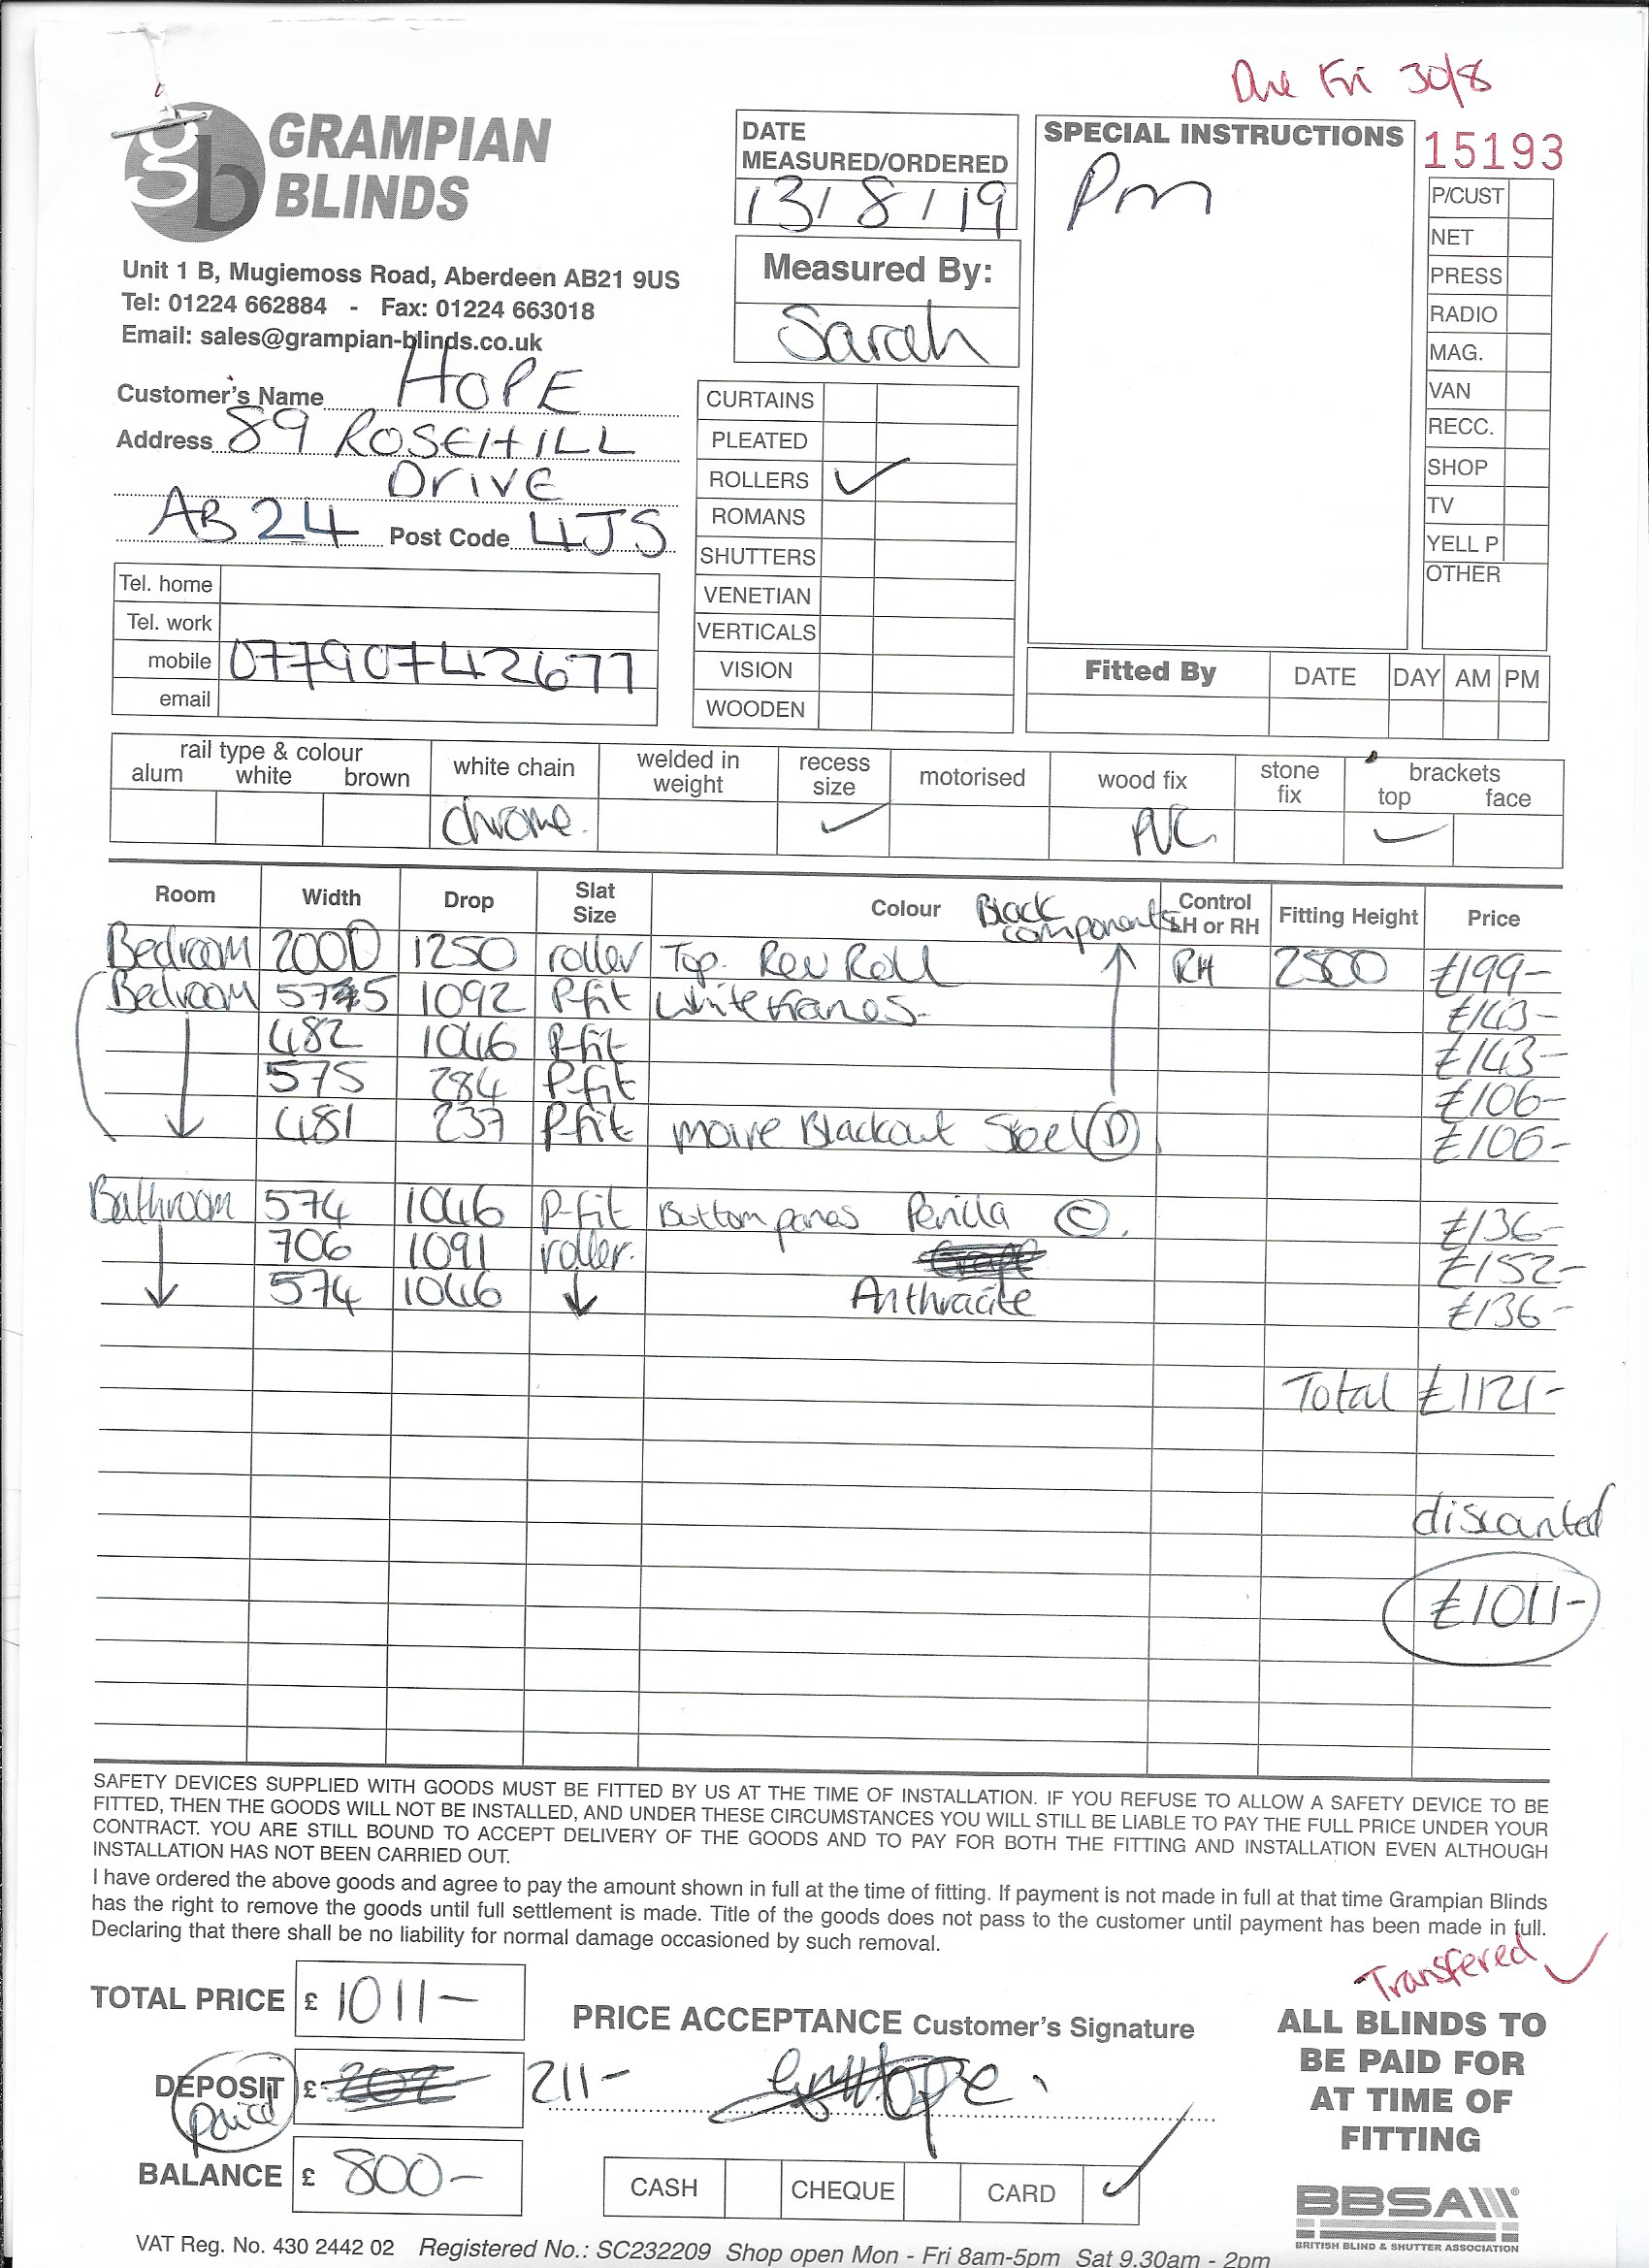 Due Fri 30/8
GRAMPIAN
BLINDS
Unit 1 B, Mugiemoss Road, Aberdeen AB21 9US
Tel: 01224 662884 - Fax: 01224 663018
Email: sales@grampian-blinds.co.uk
Customer's Name HOPE
Address 89 ROSEHILL
DRIVE
AB24 Post Code 4JS
Tel. home
Tel. work
mobile 07790742677
email
DATE
MEASURED/ORDERED
13/8/19
Measured By:
Sarah
CURTAINS
PLEATED
ROLLERS ✓
ROMANS
SHUTTERS
VENETIAN
VERTICALS
VISION
WOODEN
SPECIAL INSTRUCTIONS
Pm
15193
P/CUST
NET
PRESS
RADIO
MAG.
VAN
RECC.
SHOP
TV
YELL P
OTHER
Fitted By DATE DAY AM PM
rail type & colour
alum white brown
white chain
chrome.
welded in
weight
recess
size
✓
motorised
wood fix
PVC
stone
fix
brackets
top face
✓
Room Width Drop Slat Size Colour Black components Control LH or RH Fitting Height Price
Bedroom 2000 1250 roller Top. Rev Roll RH 2500 £199-
Bedroom 575 1092 P-fit White frames. £143-
482 1046 P-fit £143-
575 284 P-fit £106-
481 237 P-fit moire Blackout Steel (D) £106-
Bathroom 574 1046 P-fit Bottom panes Perilla (C). £136-
706 1091 roller. £152-
574 1046 Anthracite £136-
Total £1121-
discounted
£1011-
SAFETY DEVICES SUPPLIED WITH GOODS MUST BE FITTED BY US AT THE TIME OF INSTALLATION. IF YOU REFUSE TO ALLOW A SAFETY DEVICE TO BE
FITTED, THEN THE GOODS WILL NOT BE INSTALLED, AND UNDER THESE CIRCUMSTANCES YOU WILL STILL BE LIABLE TO PAY THE FULL PRICE UNDER YOUR
CONTRACT. YOU ARE STILL BOUND TO ACCEPT DELIVERY OF THE GOODS AND TO PAY FOR BOTH THE FITTING AND INSTALLATION EVEN ALTHOUGH
INSTALLATION HAS NOT BEEN CARRIED OUT.
I have ordered the above goods and agree to pay the amount shown in full at the time of fitting. If payment is not made in full at that time Grampian Blinds
has the right to remove the goods until full settlement is made. Title of the goods does not pass to the customer until payment has been made in full.
Declaring that there shall be no liability for normal damage occasioned by such removal.
Transfered ✓
TOTAL PRICE £ 1011-
DEPOSIT £ 202 211-
paid
BALANCE £ 800-
PRICE ACCEPTANCE Customer's Signature
CASH CHEQUE CARD ✓
ALL BLINDS TO
BE PAID FOR
AT TIME OF
FITTING
BBSA
BRITISH BLIND & SHUTTER ASSOCIATION
VAT Reg. No. 430 2442 02 Registered No.: SC232209 Shop open Mon - Fri 8am-5pm Sat 9.30am - 2pm